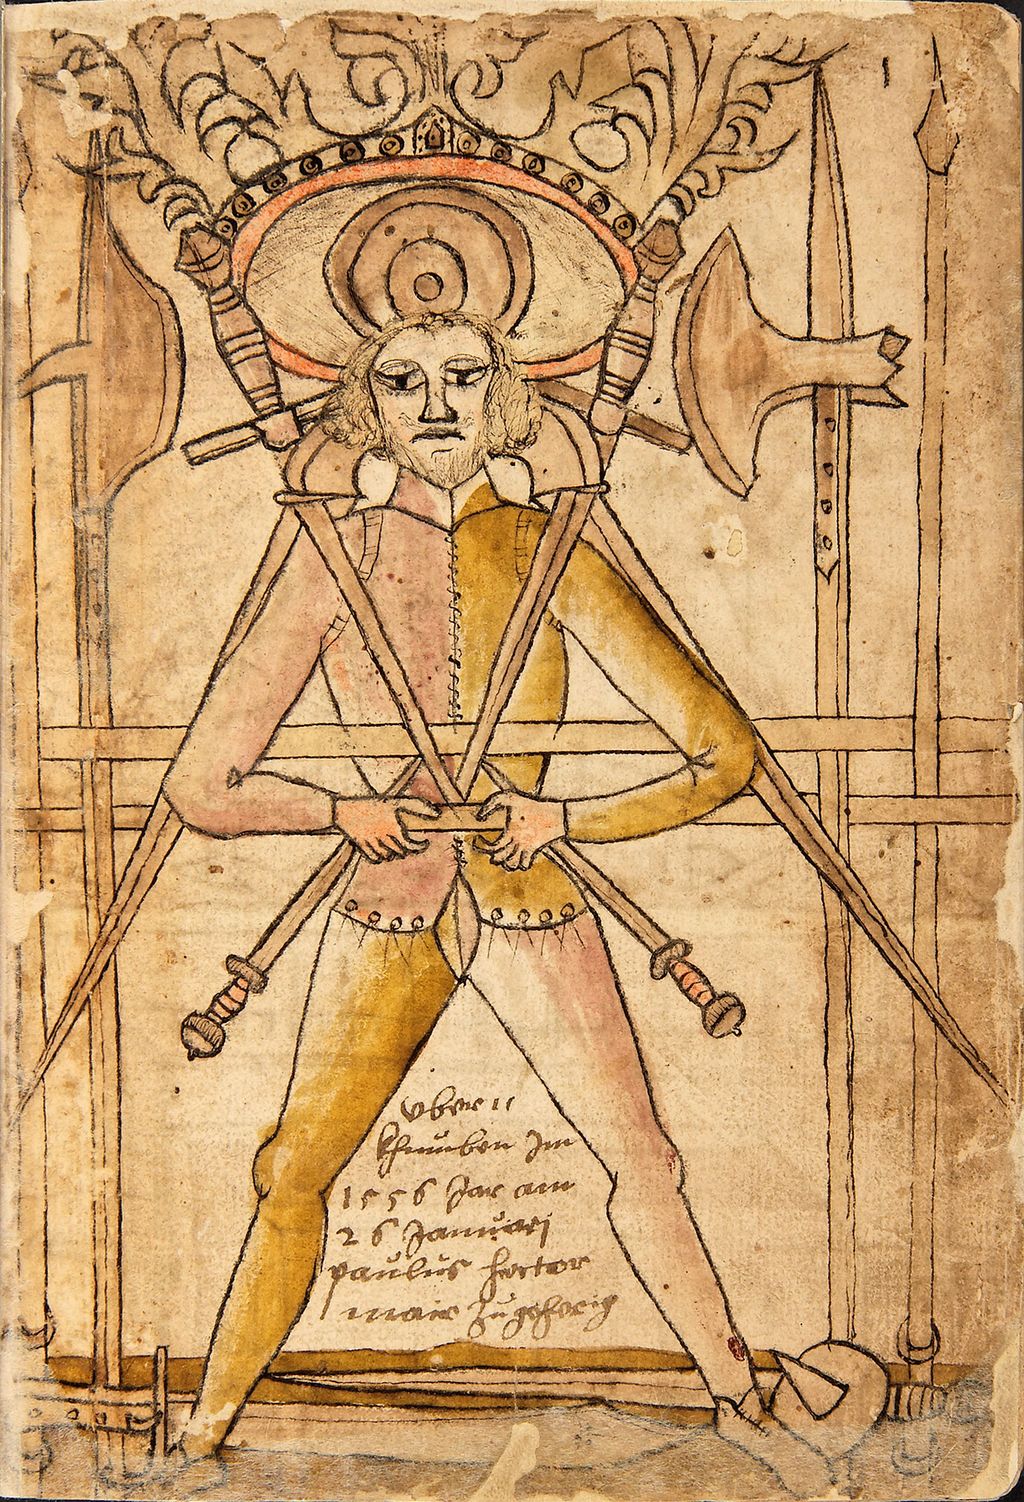 vber 11
khumben Im
1556 Jar am
26 Januarj
paulus hector
mair zugeherig